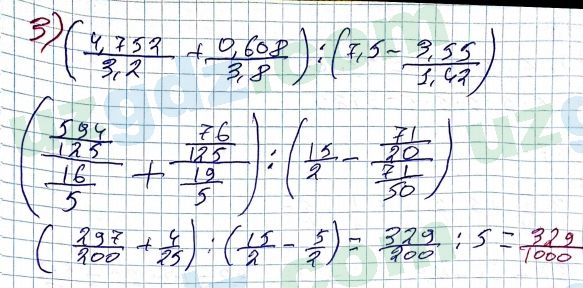 3) (4,752/3,2 + 0,608/3,8) : (7,5 - 3,55/1,42)
((594/125)/(16/5) + (76/125)/(19/5)) : (15/2 - (71/20)/(71/50))
(297/200 + 4/25) : (15/2 - 5/2) = 329/200 : 5 = 329/1000